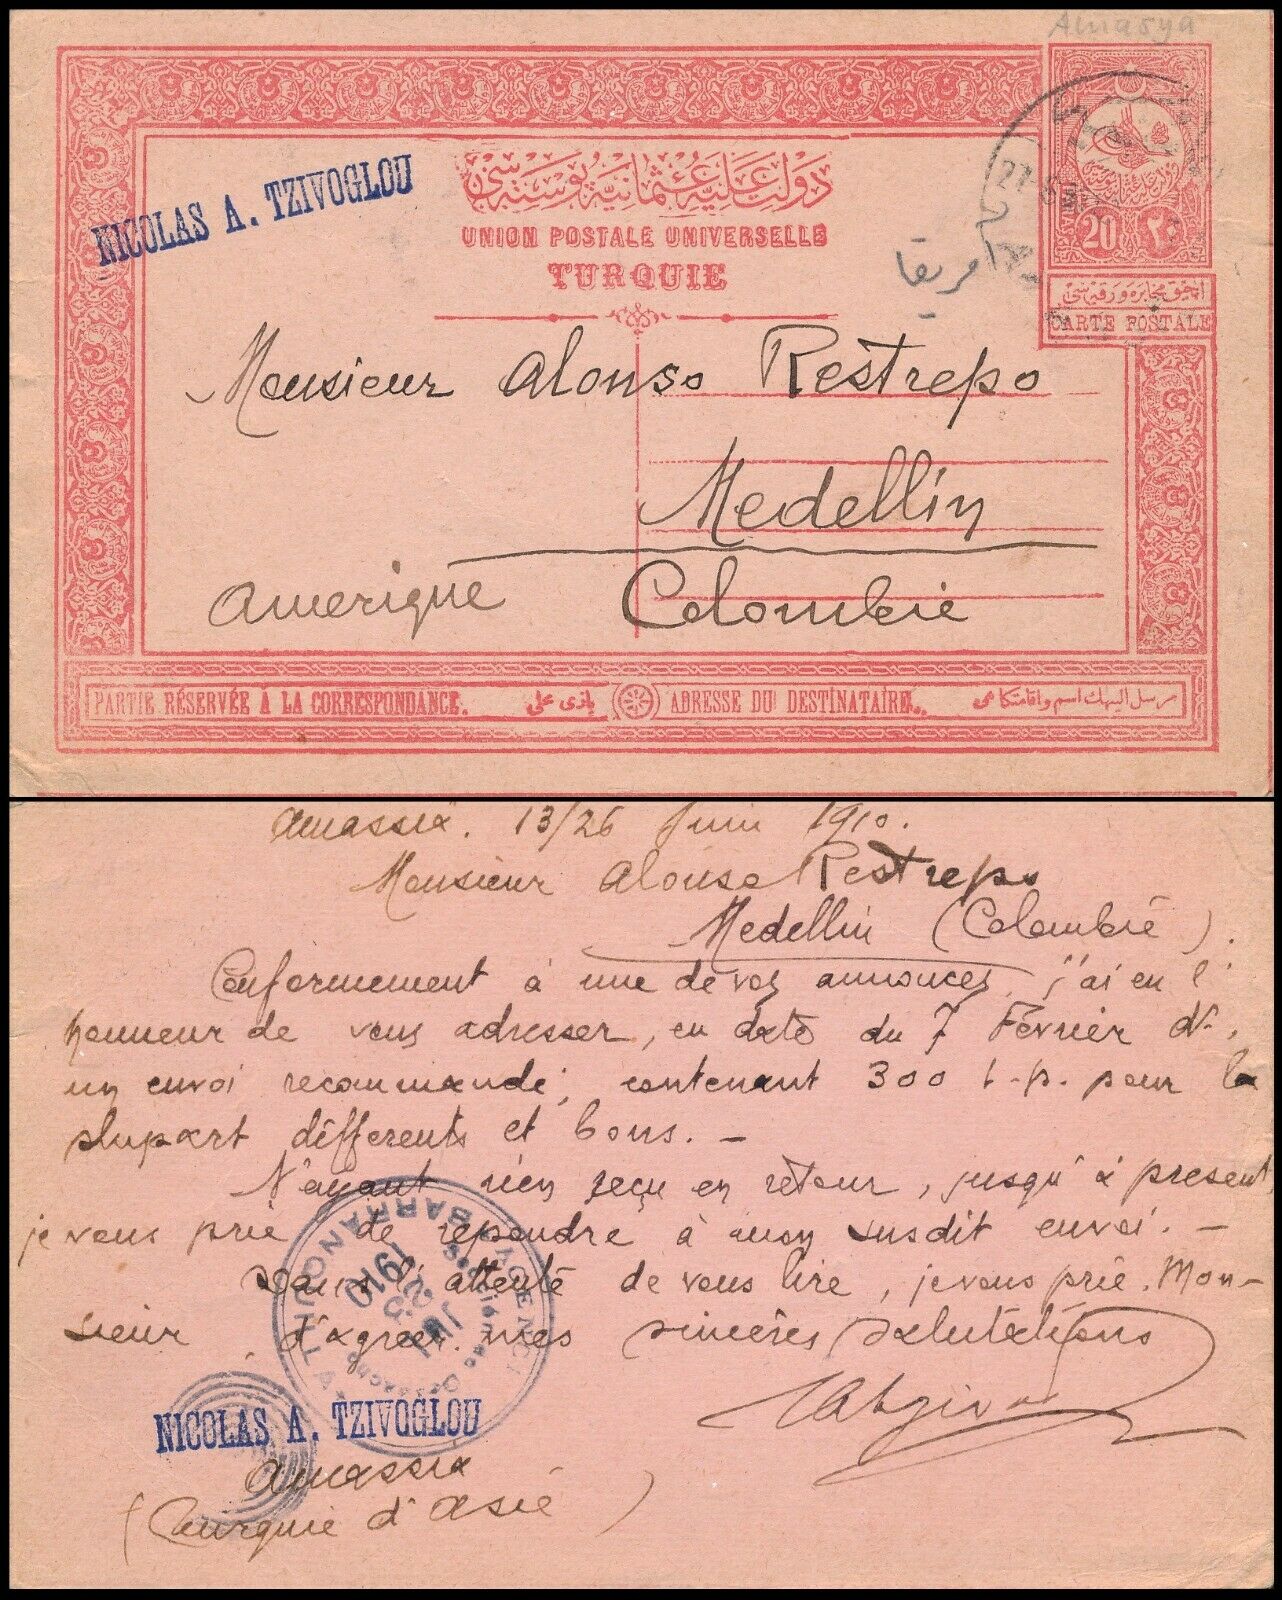 Amasya
NICOLAS A. TZIVOGLOU
دولت عليۀ عثمانيه پوستەسی
UNION POSTALE UNIVERSELLE
TURQUIE
27-6
20 ٢٠
امريقا
CARTE POSTALE
Monsieur Alonso Restrepo
Medellin
Amerique Colombie
PARTIE RÉSERVÉE À LA CORRESPONDANCE. ADRESSE DU DESTINATAIRE.
Amassia. 13/26 Juin 1910.
Monsieur Alonso Restrepo
Medellin (Colombie).
Conformement à une de vos annonces, j'ai eu l'
honneur de vous adresser, en date du 7 Février dr,
un envoi recommandé, contenant 300 t.-p. pour la
plupart différents et bons. —
N'ayant rien reçu en retour, jusqu'à present,
je vous prie de repondre à mon susdit envoi. —
Dans l'attente de vous lire, je vous prie, Mon-
sieur, d'agreer mes sincères salutations
AGENCIA BARRANQUILLA
JUL 25 1910
NICOLAS A. TZIVOGLOU
Amassia
(Turquie d'Asie)